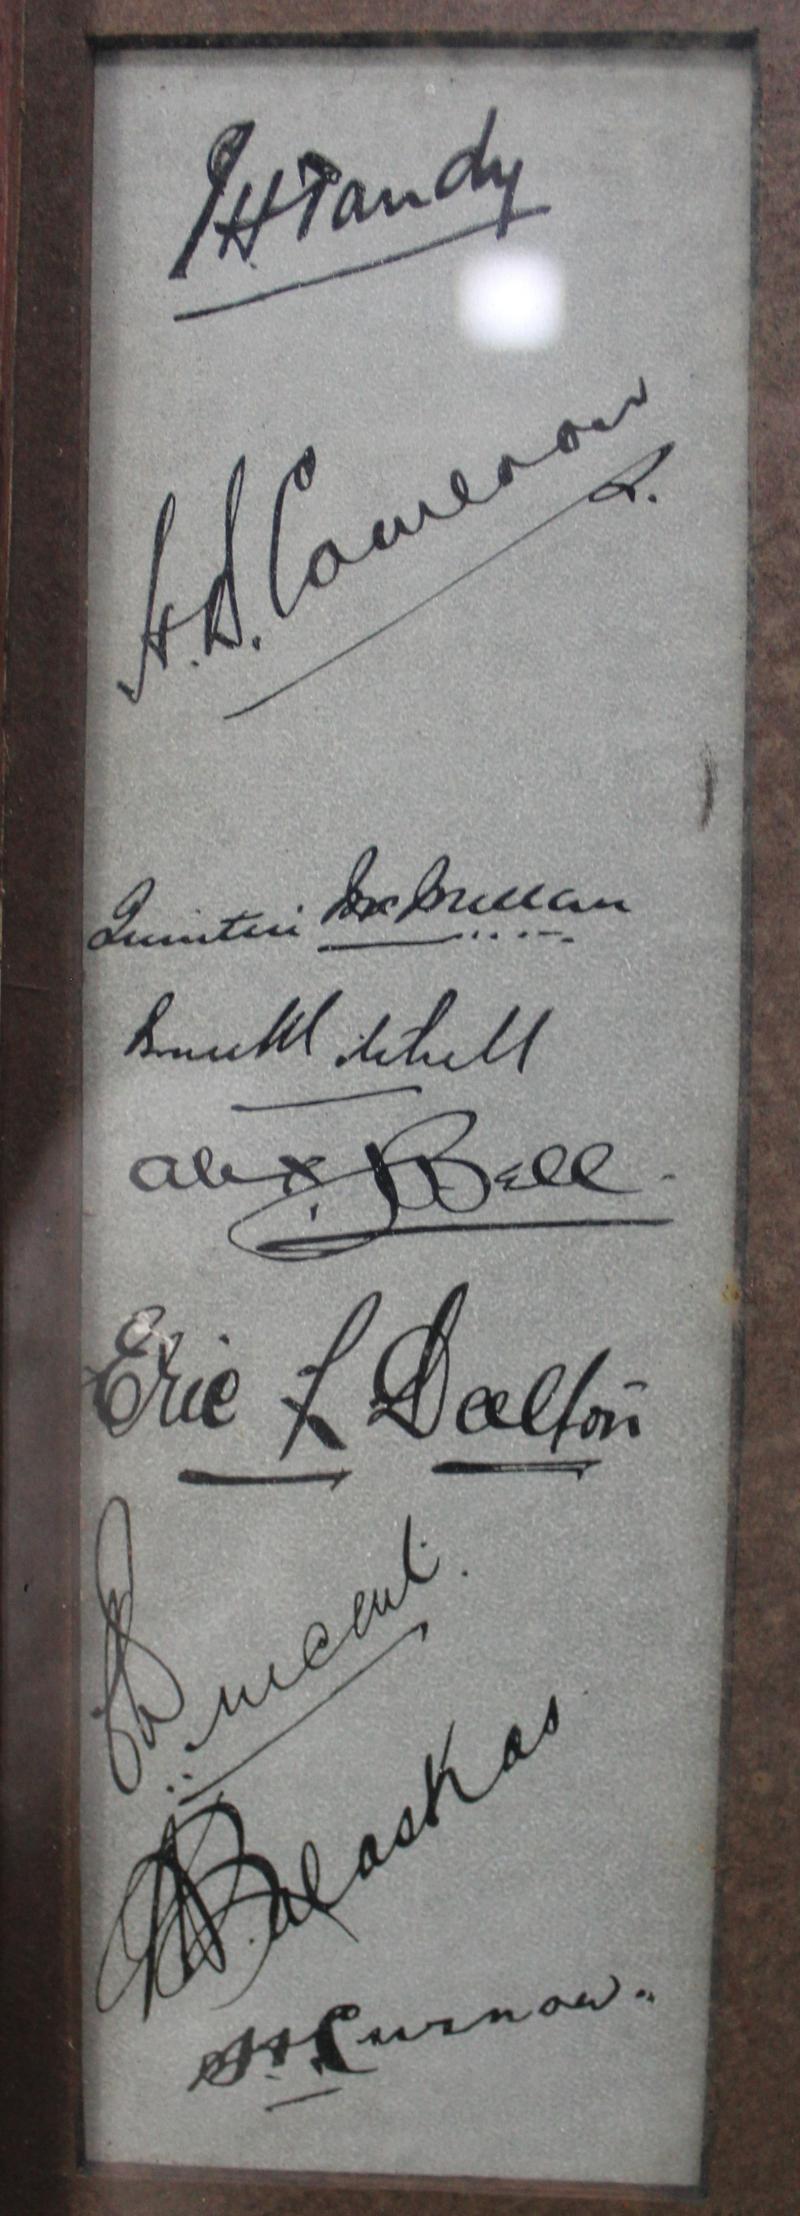 J H Tandy
H. B. Cameron
Quintin McMillan
Bruce Mitchell
Alex. J Bell.
Eric L Dalton
Vincent.
X. Balaskas
S. H. Curnow.